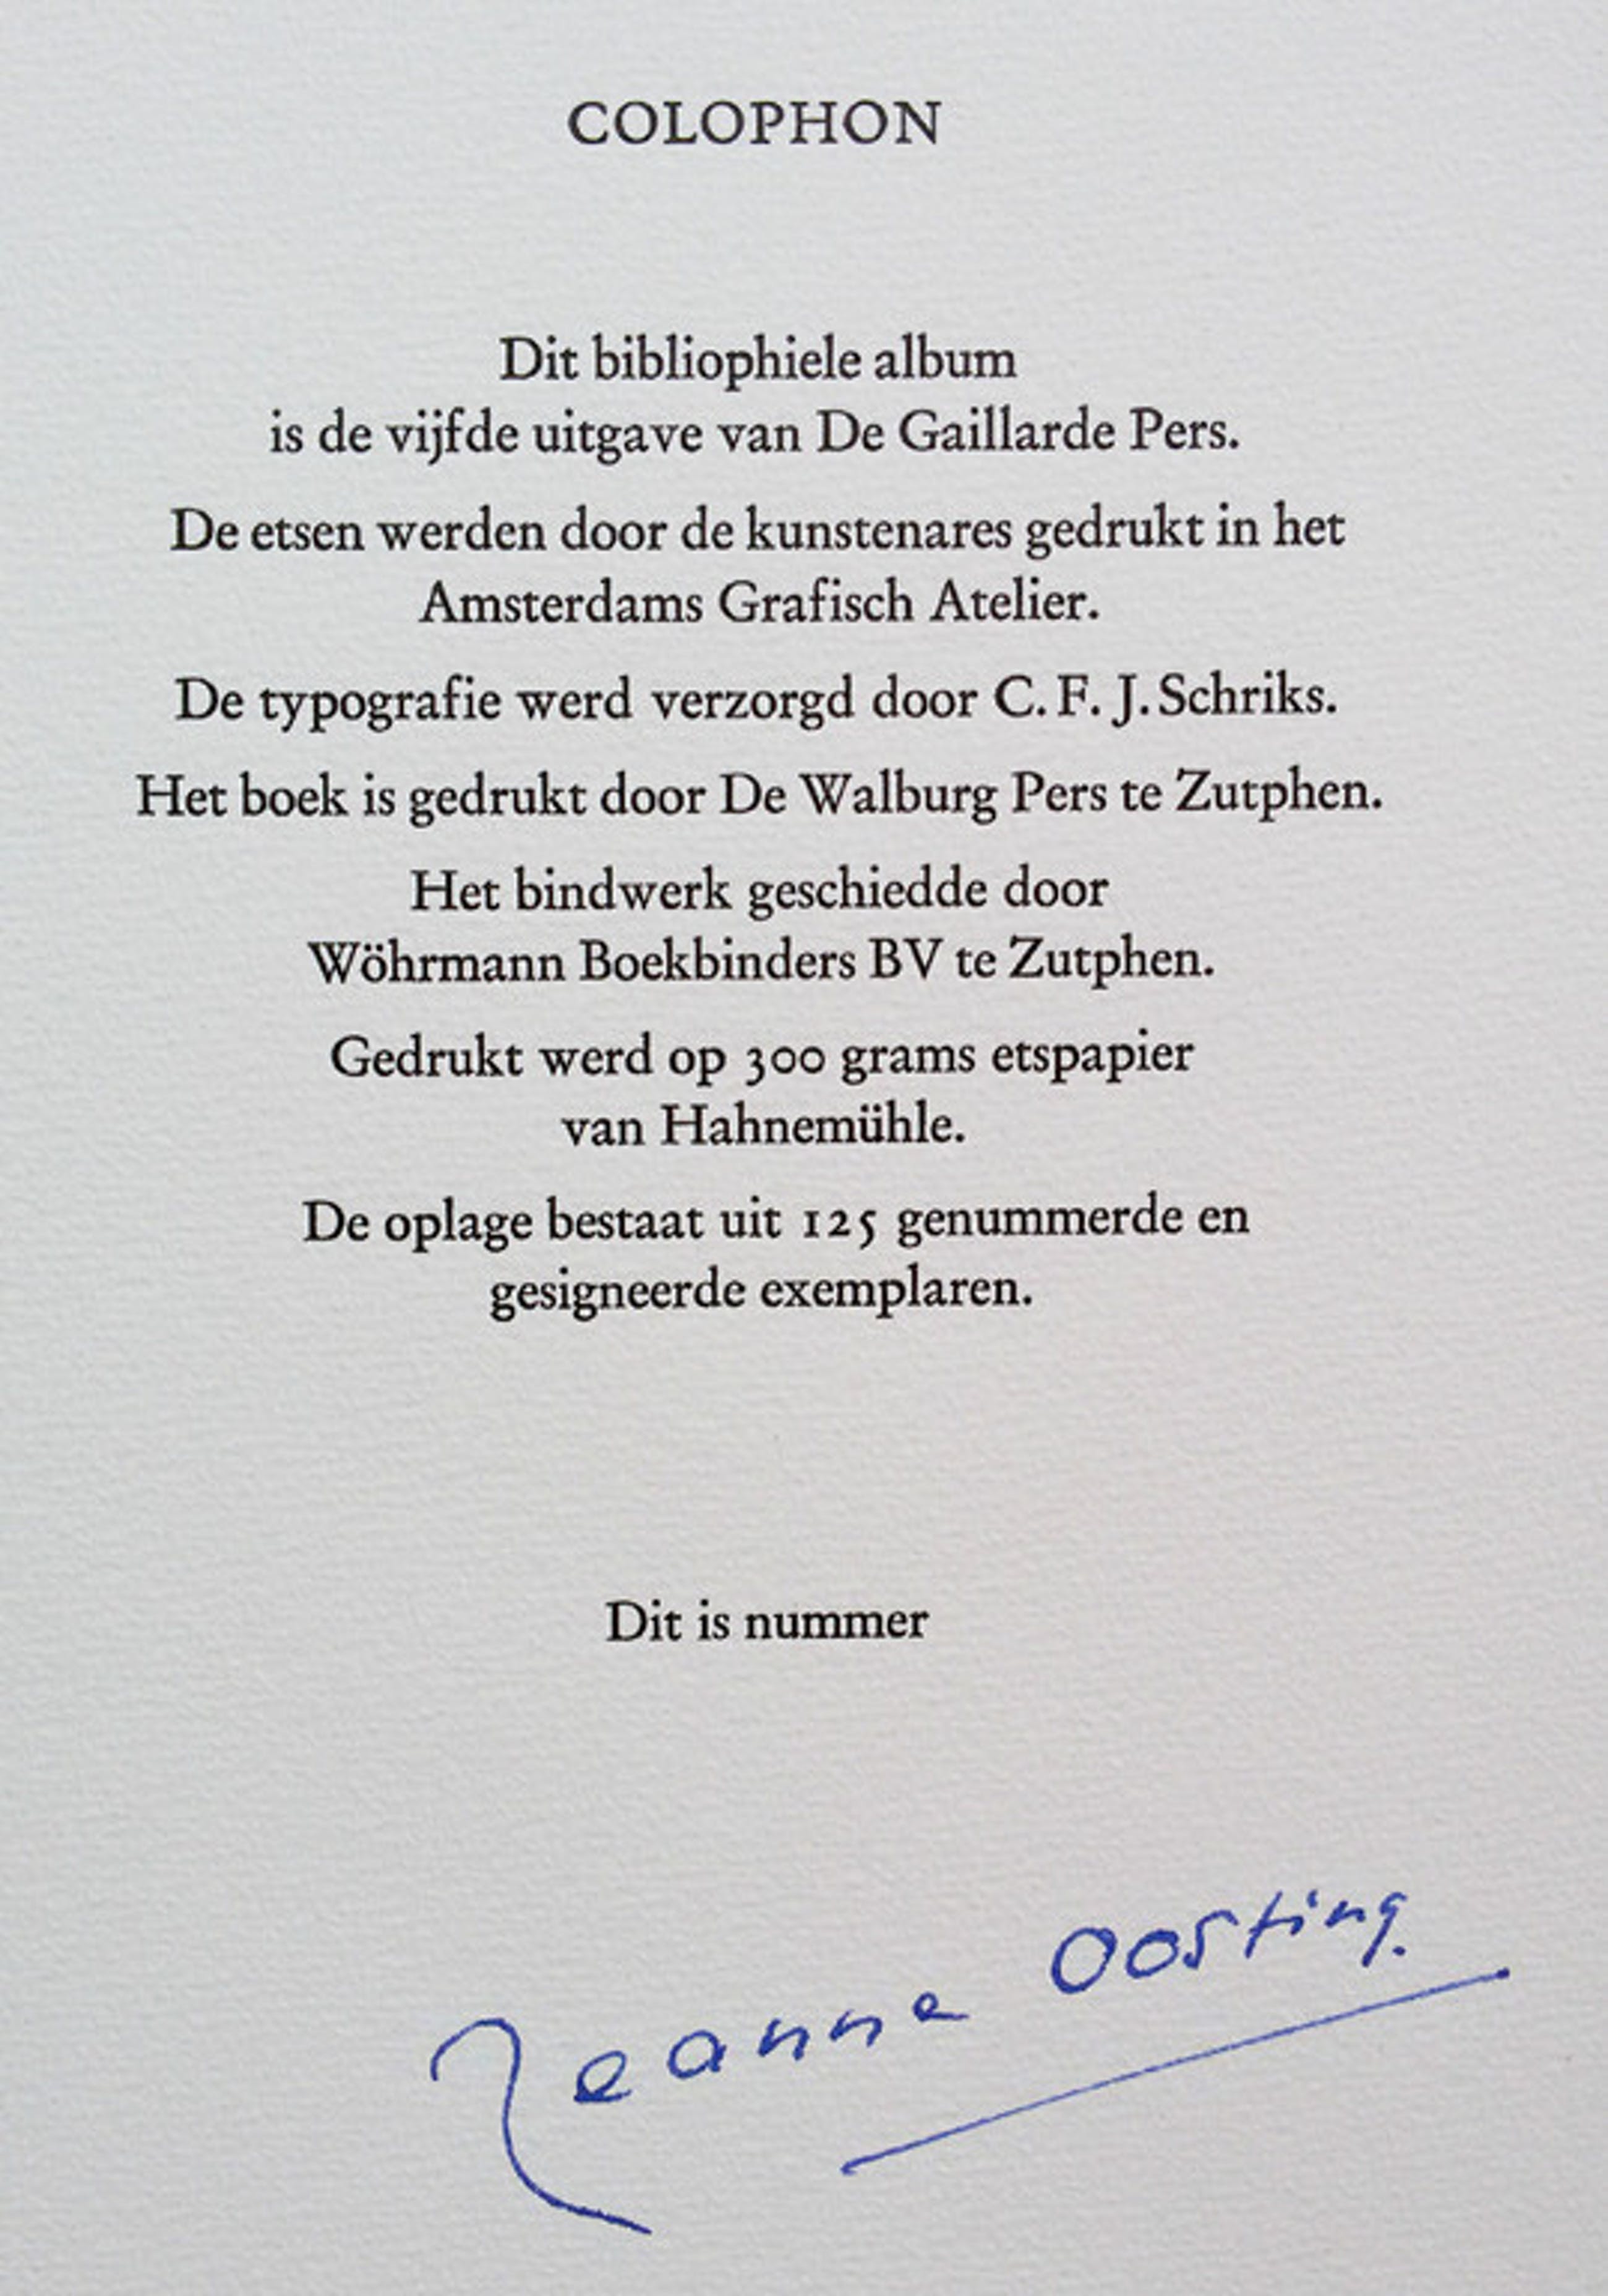 COLOPHON
Dit bibliophiele album
is de vijfde uitgave van De Gaillarde Pers.
De etsen werden door de kunstenares gedrukt in het
Amsterdams Grafisch Atelier.
De typografie werd verzorgd door C. F. J. Schriks.
Het boek is gedrukt door De Walburg Pers te Zutphen.
Het bindwerk geschiedde door
Wöhrmann Boekbinders BV te Zutphen.
Gedrukt werd op 300 grams etspapier
van Hahnemühle.
De oplage bestaat uit 125 genummerde en
gesigneerde exemplaren.
Dit is nummer
Jeanne Oosting.